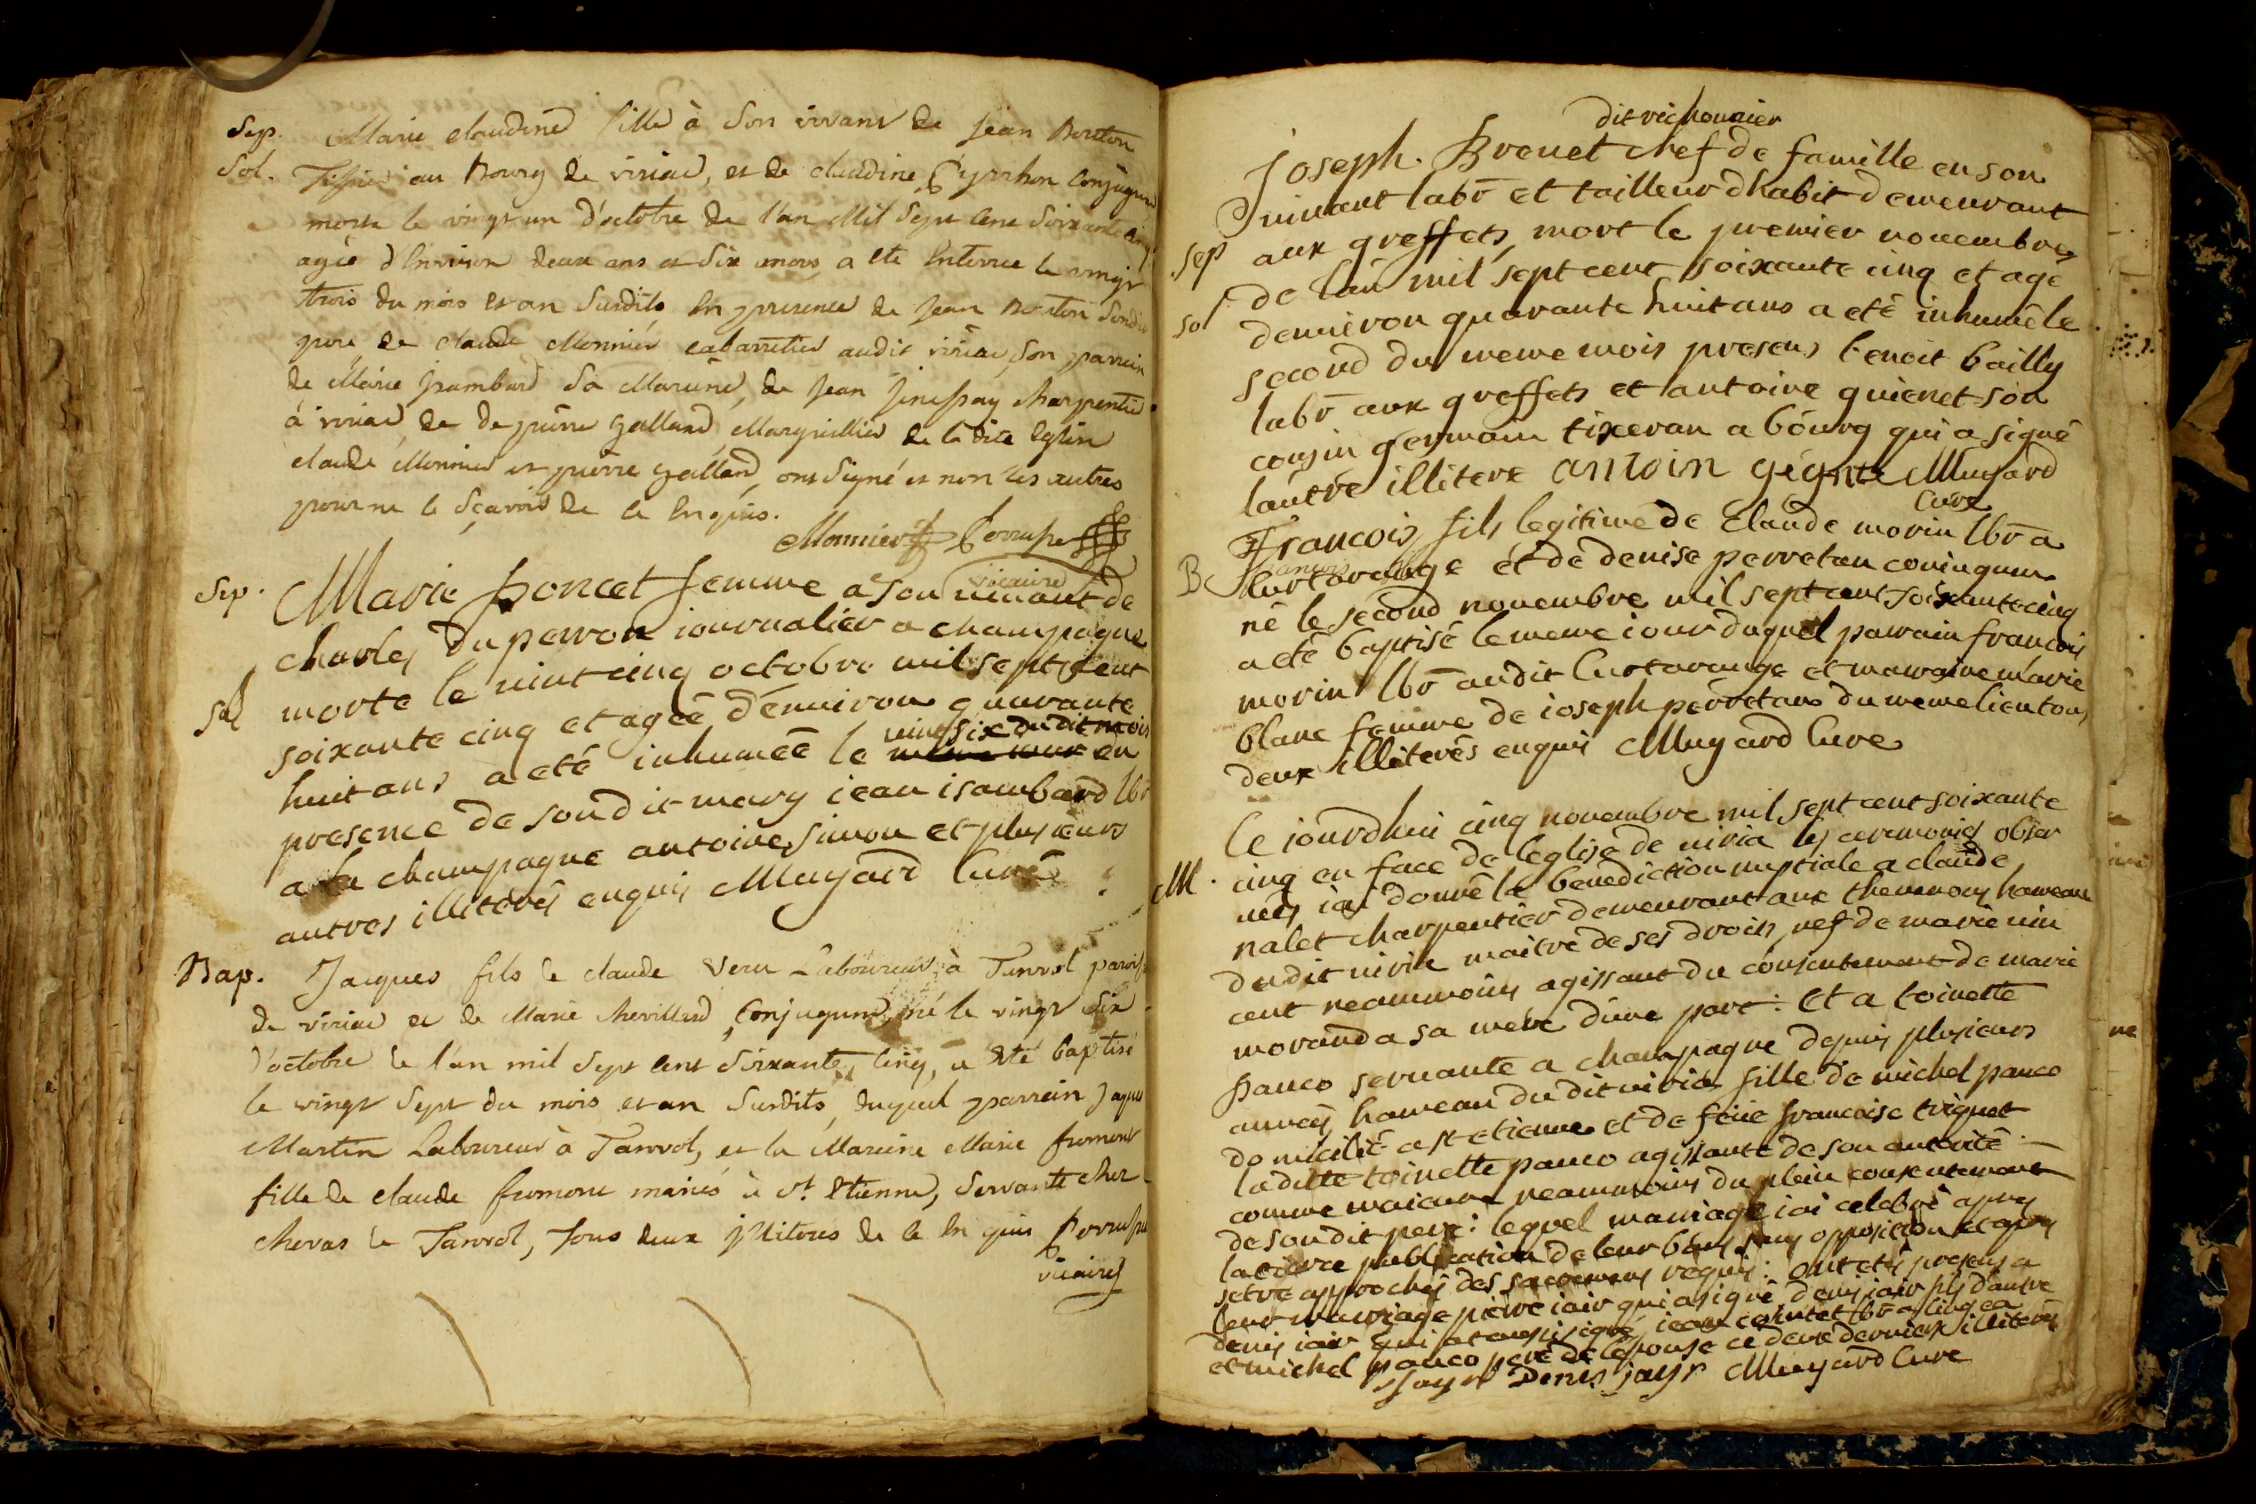 Sep. Marie claudine fille à Son vivant de Jean Bouton
Sol. Tissier au Bourg de viriac, et de claudine Pyrrhon Conjugum
morte le vingt un d'octobre de l'an Mil Sept Cent Soixante cinq
agée d'Environ deux ans et Six mois a eté Enterree le vingt
trois du mois et an Susdits En presence de Jean Bouton Sondit
pere de claude Monnier cabarretier audit viriac, Son parrein
de Marie Grambard Sa Mareine, de Jean charpentier
à viriac, de de pierre Galland Marguillier de la dite Eglise
claude Monnier et pierre galland, ont Signé et non les autres
pour ne le Sçavoir de ce Enquis.
Monnier Perruse
vicaire
Sep. Marie poncet femme a son vivant de
charles duperron iournalier a champagne
Sol morte le vint cinq octobre mil sept cent
soixante cinq et agèe d'enuiron quarante
vingsix dudit mois
huit ans a eté inhumèe le en
presence de soudit mary iean isambard lbr
a la champagne antoine simon et plusieurs
autres illiterès enquis Muyard Curé
Bap. Jacques fils de claude Veru Laboureur à Tanvol parois
de viriac et de Marie chevillard Conjugum, né le vingt Six
d'octobre de l'an mil Sept Cent Soixante, Cinq, a Eté baptisé
le vingt Sept du mois et an Susdits, duquel parrain Jaque
Martin Laboureur à Tanvol, et la Mareine Marie fromont
fille de claude fromont mariés à St. Etienne, Servante cher
chevas de Tanvol, tous deux jlliteres de ce En quis Perruse
vicaire
dit vichounier
Joseph. Brevet chef de famille en son
vivant labr et tailleur dhabit demeurant
sep aux greffets, mort le premier nouembre
de l'an mil sept cent soixante cinq et agé
sol denuiron quarante huit ans a eté inhumè le
second du meme mois presens benoit bailly
labr aux greffets et antoine guienet son
cousin germain tixeran a bourg qui a signé
lautre illitere antoin Muyard
Cure
Francois fils legitime de Claude morin lbr a
B Curtarange et de denise perretan coniugum
né le second nouembre mil sept cent soixante cinq
a eté baptisè le meme iour duquel parain francois
morin lbr audit Curtarange et maraine marie
blanc femme de ioseph perretan du meme lieu tous
deux illiterès enquis Muyard Cure
Ce iourdhui cinq nouembre mil sept cent soixante
cinq en face de leglise de uiria les ceremonies obser
M. uées iai donné la benediction nuptiale a claude
nalet charpentier demeurant aux hameau
dudit uiria maitre de ses droits, nef de marie uin
cent neammoins agissant du consentement de marie
moranda sa mere d'une part: Et a toinette
panco servante a champagne depuis plusieurs
années hameau du dit uiria fille de michel panco
domicilié a st etienne et de feüe francoise triquet
laditte toinette panco agissante de son autorité
comme maieure neammoins du plein consentement
de soudit pere: lequel mariage iai celebré apres
la publication de leur bans sans opposition et apres
setre approchés des sacremens requis: ont eté presens a
leur mariage pierre iair qui a signé denis iair fils d'autre
denis iair qui a aussi signé, iean lbr a
et michel panco pere de lepouse ce deux derniers illiterés
Jayr Denis jayr Muyard Cure